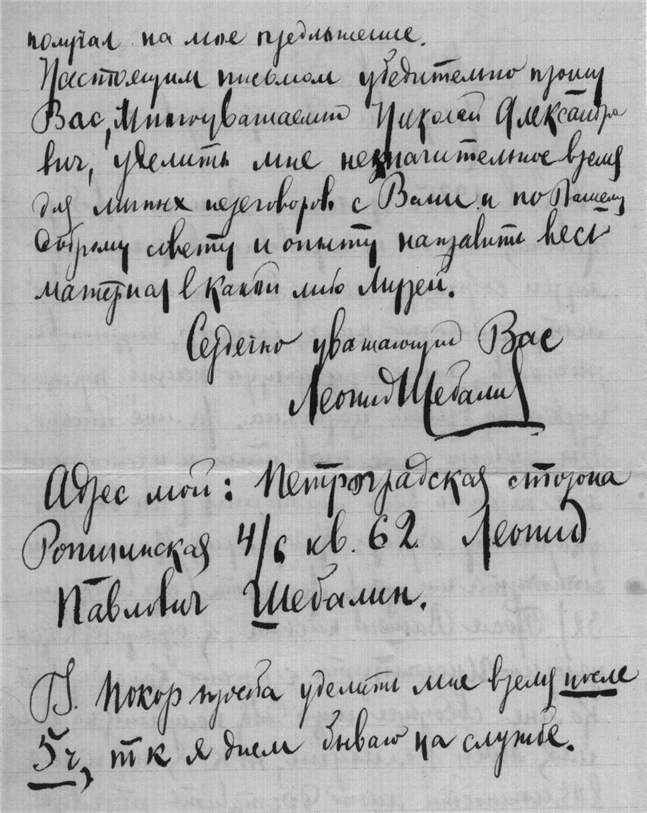 получал на мое предложение.
Настоящим письмом убедительно прошу
Вас, Многоуважаемый Николай Александро
вич, уделить мне незначительное время
для личных переговоров с Вами и по Вашему
доброму совету и опыту направить весь
материал в какой либо Музей.
Сердечно уважающий Вас
Леонид Шебалин
Адрес мой: Петроградская сторона
Ропшинская 4/6 кв. 62. Леонид
Павлович Шебалин.
Покор просьба уделить мне время после
5 ч, т к я днем бываю на службе.